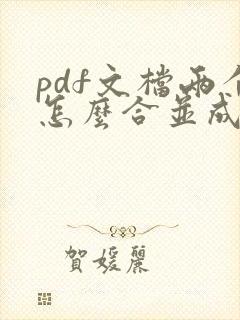 pdf文檔兩個
怎麼合並成
賀媛麗